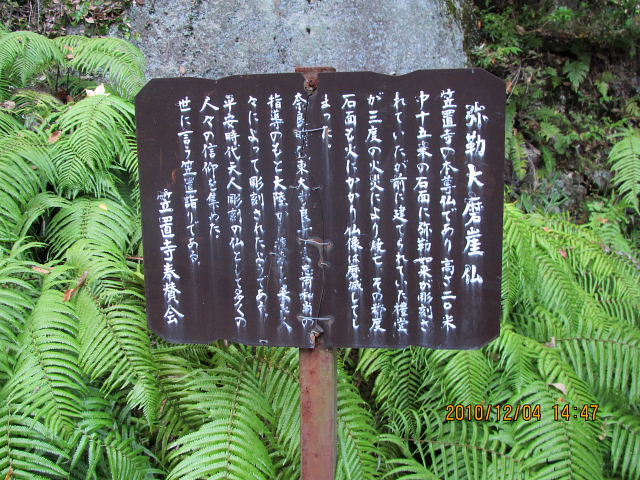 弥勒大磨崖仏
笠置寺の本尊仏であり高さ二〇米
巾十五米の石面に弥勒如来が彫刻さ
れていたが前に建てられていた禮堂
が三度の火災により焼亡その都度
石面も火にかかり仏像は磨滅してし
まった。
奈良時代東大寺良弁
指導のもと大陸から 来た人
々によって彫刻されたものであるが
平安時代天人彫刻の仏として多くの
人々の信仰を集めた。
世に言う笠置詣りである。
笠置寺奉賛会
2010/12/04 14:47